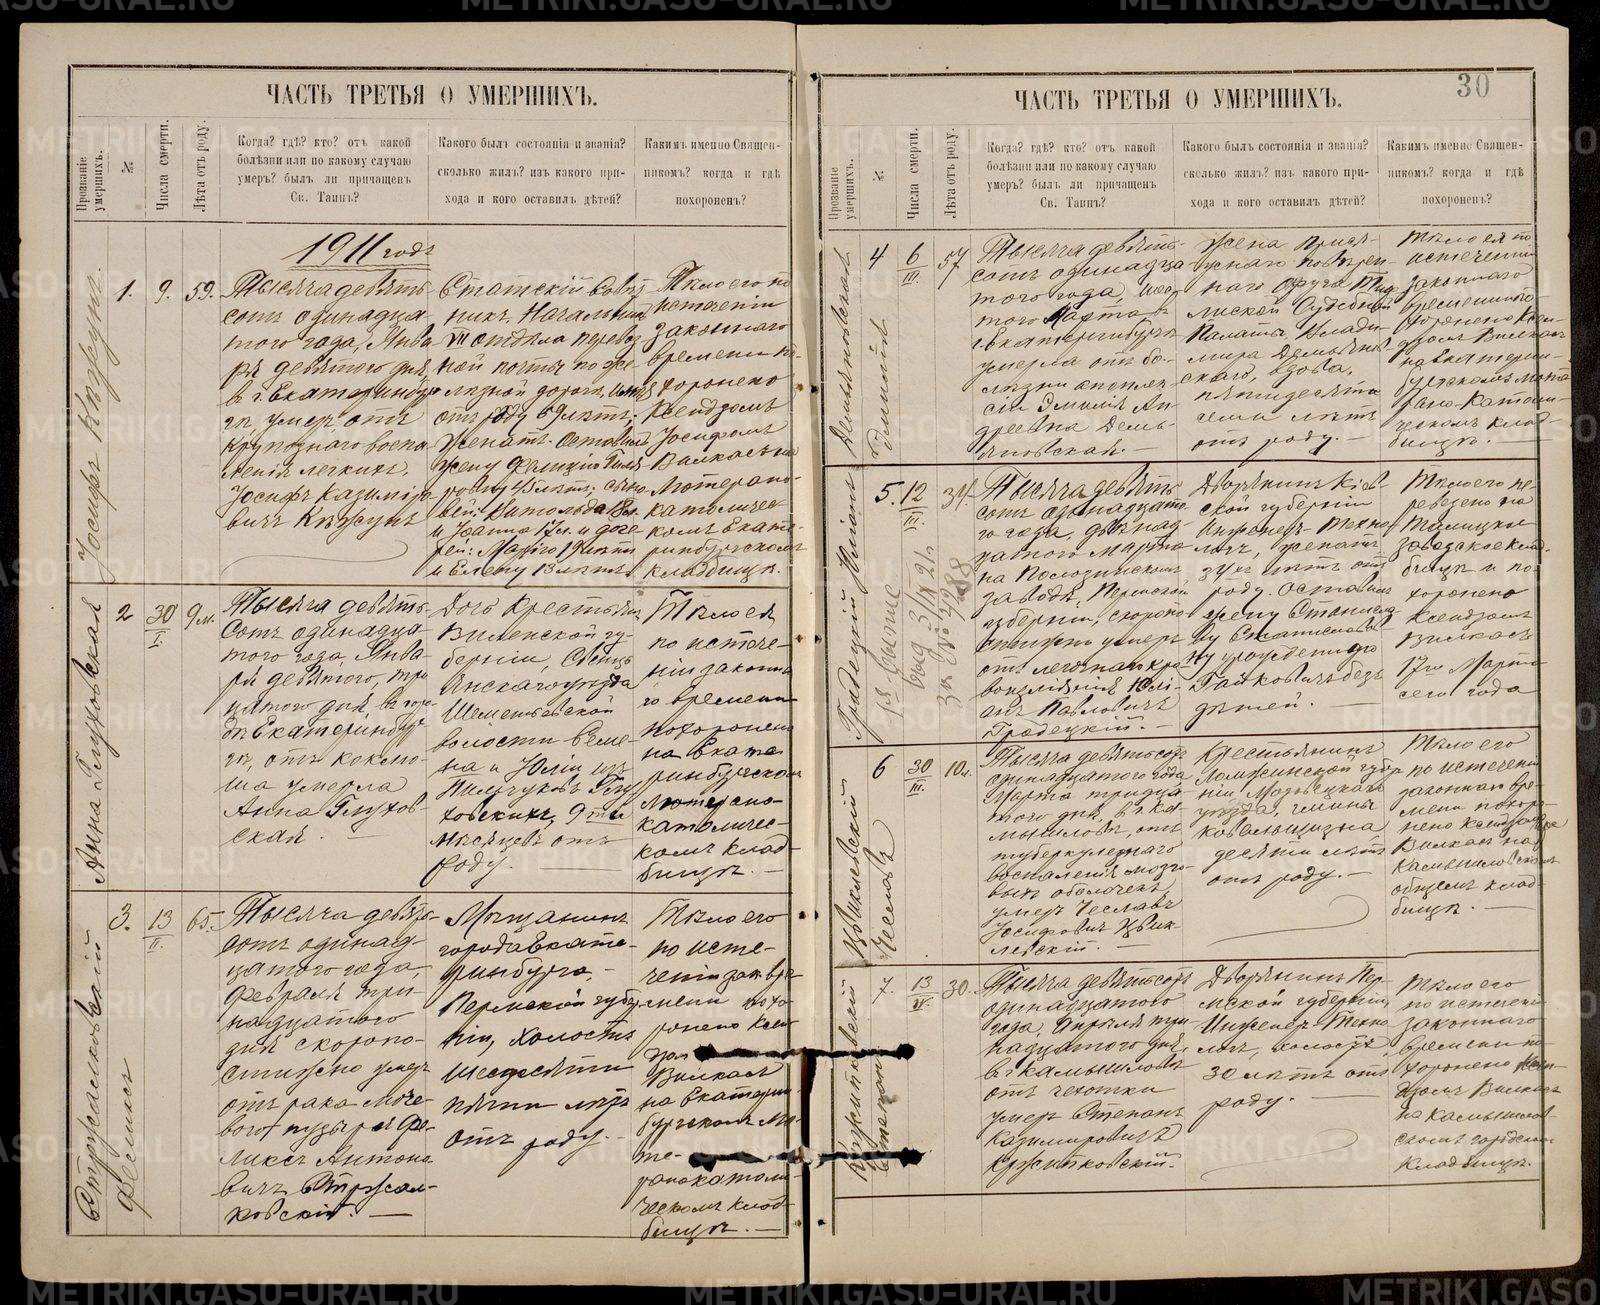 ЧАСТЬ ТРЕТЬЯ О УМЕРШИХЪ.
Прозваніе умершихъ.
№
Числа смерти.
Лѣта отъ роду.
Когда? гдѣ? кто? отъ какой
болѣзни или по какому случаю
умеръ? былъ ли причащенъ
Св. Таинъ?
Какого былъ состоянія и званія?
сколько жилъ? изъ какого при-
хода и кого оставилъ дѣтей?
Какимъ именно Священ-
никомъ? когда и гдѣ
похороненъ?
1911 годъ
Іосифъ Кѣжунъ
1.
9.
59.
Тысяча девять-
сотъ одинадца-
того года, Янва-
ря девятого дня,
в г. Екатеринбур-
гѣ, умеръ отъ
крупознаго воспа-
ленія легкихъ,
Іосифъ Казиміро-
вичъ Кѣжунъ
Статскій Совѣт-
никъ. Начальникъ
III отдѣла перевоз-
ной почты по же-
лѣзной дорогѣ,
отъ роду 59 лѣтъ;
женатъ. Оставилъ
жену Фелицію
45 лѣтъ; сыно-
вей: Витольда
и Іоанна 17 л. и доче-
рей: Марію 19 лѣтъ
и Елену 13 лѣтъ.
Тѣло его по
истеченіи
законнаго
времени по-
хоронено
Ксендзомъ
Іосифомъ
Вилкасъ на
Лютерано-
католичес-
комъ Екате-
ринбургскомъ
кладбищѣ.
Анна Глуховская
2
30
I.
9 м.
Тысяча девять-
сотъ одинадца-
того года, Янва-
ря девятого, три
цятого дня въ горо-
дѣ Екатеринбур-
гѣ, отъ коклю-
ша умерла
Анна Глухов-
ская.
Дочь Крестьянъ
Виленской гу-
берніи, Свенцъ
янскаго уѣзда
волости Семе-
на и Юліи изъ
ховскихъ, 9 ти
мѣсяцевъ отъ
роду.
Тѣло ея
по истече-
ніи законна-
го времени
похоронено
на Екате-
ринбургском
Лютерано-
католичес-
комъ клад-
бищѣ.
Стржалковскій
Феликсъ
3.
13
II.
65.
Тысяча девять-
сотъ одинад-
цатого года,
Февраля три-
надцатого
дня скоропо-
стижно умеръ
отъ рака моче-
вого пузыря Фе-
ликсъ Антоно-
вичъ Стржал-
ковскій.
Мѣщанинъ
города Екате-
ринбурга,
Пермской губер-
ніи, холостъ
шестдесяти
пяти лѣтъ
отъ роду.
Тѣло его
по исте-
ченіи зак. вре-
мени похо-
ронено Ксен-
дзом
Вилкасъ
на Екатерин-
бургскомъ Лю-
те-
ранокатоли-
ческомъ клад-
бищѣ.
30
ЧАСТЬ ТРЕТЬЯ О УМЕРШИХЪ.
Прозваніе умершихъ.
№
Числа смерти.
Лѣта отъ роду.
Когда? гдѣ? кто? отъ какой
болѣзни или по какому случаю
умеръ? былъ ли причащенъ
Св. Таинъ?
Какого былъ состоянія и званія?
сколько жилъ? изъ какого при-
хода и кого оставилъ дѣтей?
Какимъ именно Священ-
никомъ? когда и гдѣ
похороненъ?
Демьяновская
Эмилія
4
6
III.
57
Тысяча девять-
сотъ одинадца
того года, шес-
того Марта въ
г. Екатеринбургѣ
умерла отъ бо-
лѣзни апоплек-
сіи Эмилія Ан-
дреевна Демь-
яновская.
Жена Прися-
жнаго повѣрен-
наго округа
Судебной
Палаты Влади-
мира Демьянов-
скаго, вдова,
пятидесяти
семи лѣтъ
отъ роду.
Тѣло ея по
истеченіи
законнаго
времени по-
хоронено Ксен-
дзомъ Вилкасъ
на Екатерин-
бургскомъ Люте
рано-Католи-
ческомъ клад-
бищѣ.
Градецкій Юліанъ
5.
12
III.
34.
Тысяча девять
сотъ одинадцато
го года, двѣнад-
цатого Марта
на Полозинскомъ
заводѣ, Пермской
губерніи, скоропо
стижно умеръ
отъ легочнаго кро
воизліянія Юлі-
анъ Павловичъ
Градецкій.
Дворянинъ Кіев-
ской губерніи
Инженеръ-Техно
логъ, женатъ
34 лѣтъ отъ
роду. Оставилъ
жену Станисла
ву Станиславов
ну урожденную
Гайковичъ безъ
дѣтей.
Тѣло его пе-
ревезено на
заводское клад-
бище и по-
хоронено
Ксендзомъ
Вилкасъ
17го Марта
сего года
Цвиклевскій
Чеславъ
6
30
III.
10 л.
Тысяча девятьсотъ
одинадцатого года
Марта тридца
того дня, в г. Ка-
мышловѣ, отъ
туберкулезнаго
воспаленія мозго-
выхъ оболочекъ,
умеръ Чеславъ
Іосифовичъ Цвик-
левскій.
Крестьянинъ
Ломжинской губер
ніи Мазовецкаго
уѣзда, гмины
десяти лѣтъ
отъ роду.
Тѣло его
по истеченіи
законнаго вре-
мени похоро-
нено Ксендзомъ
Вилкасъ на
Камышловскомъ
общемъ клад-
бищѣ.
Кржитковскій
Степанъ
7.
13
IV.
30.
Тысяча девятьсотъ
одинадцатого
года, Апрѣля три-
надцатого дня,
в г. Камышловѣ
отъ чахотки
умеръ Степанъ
Казимировичъ
Кржитковскій.
Дворянинъ Пер-
мской губерніи,
Инженер-Техно
логъ, холостъ,
30 лѣтъ отъ
роду.
Тѣло его
по истеченіи
законнаго
времени по-
хоронено Ксен-
дзомъ Вилкасъ
на Камышлов-
скомъ городском
кладбищѣ.
METRIKI.GASO-URAL.RU